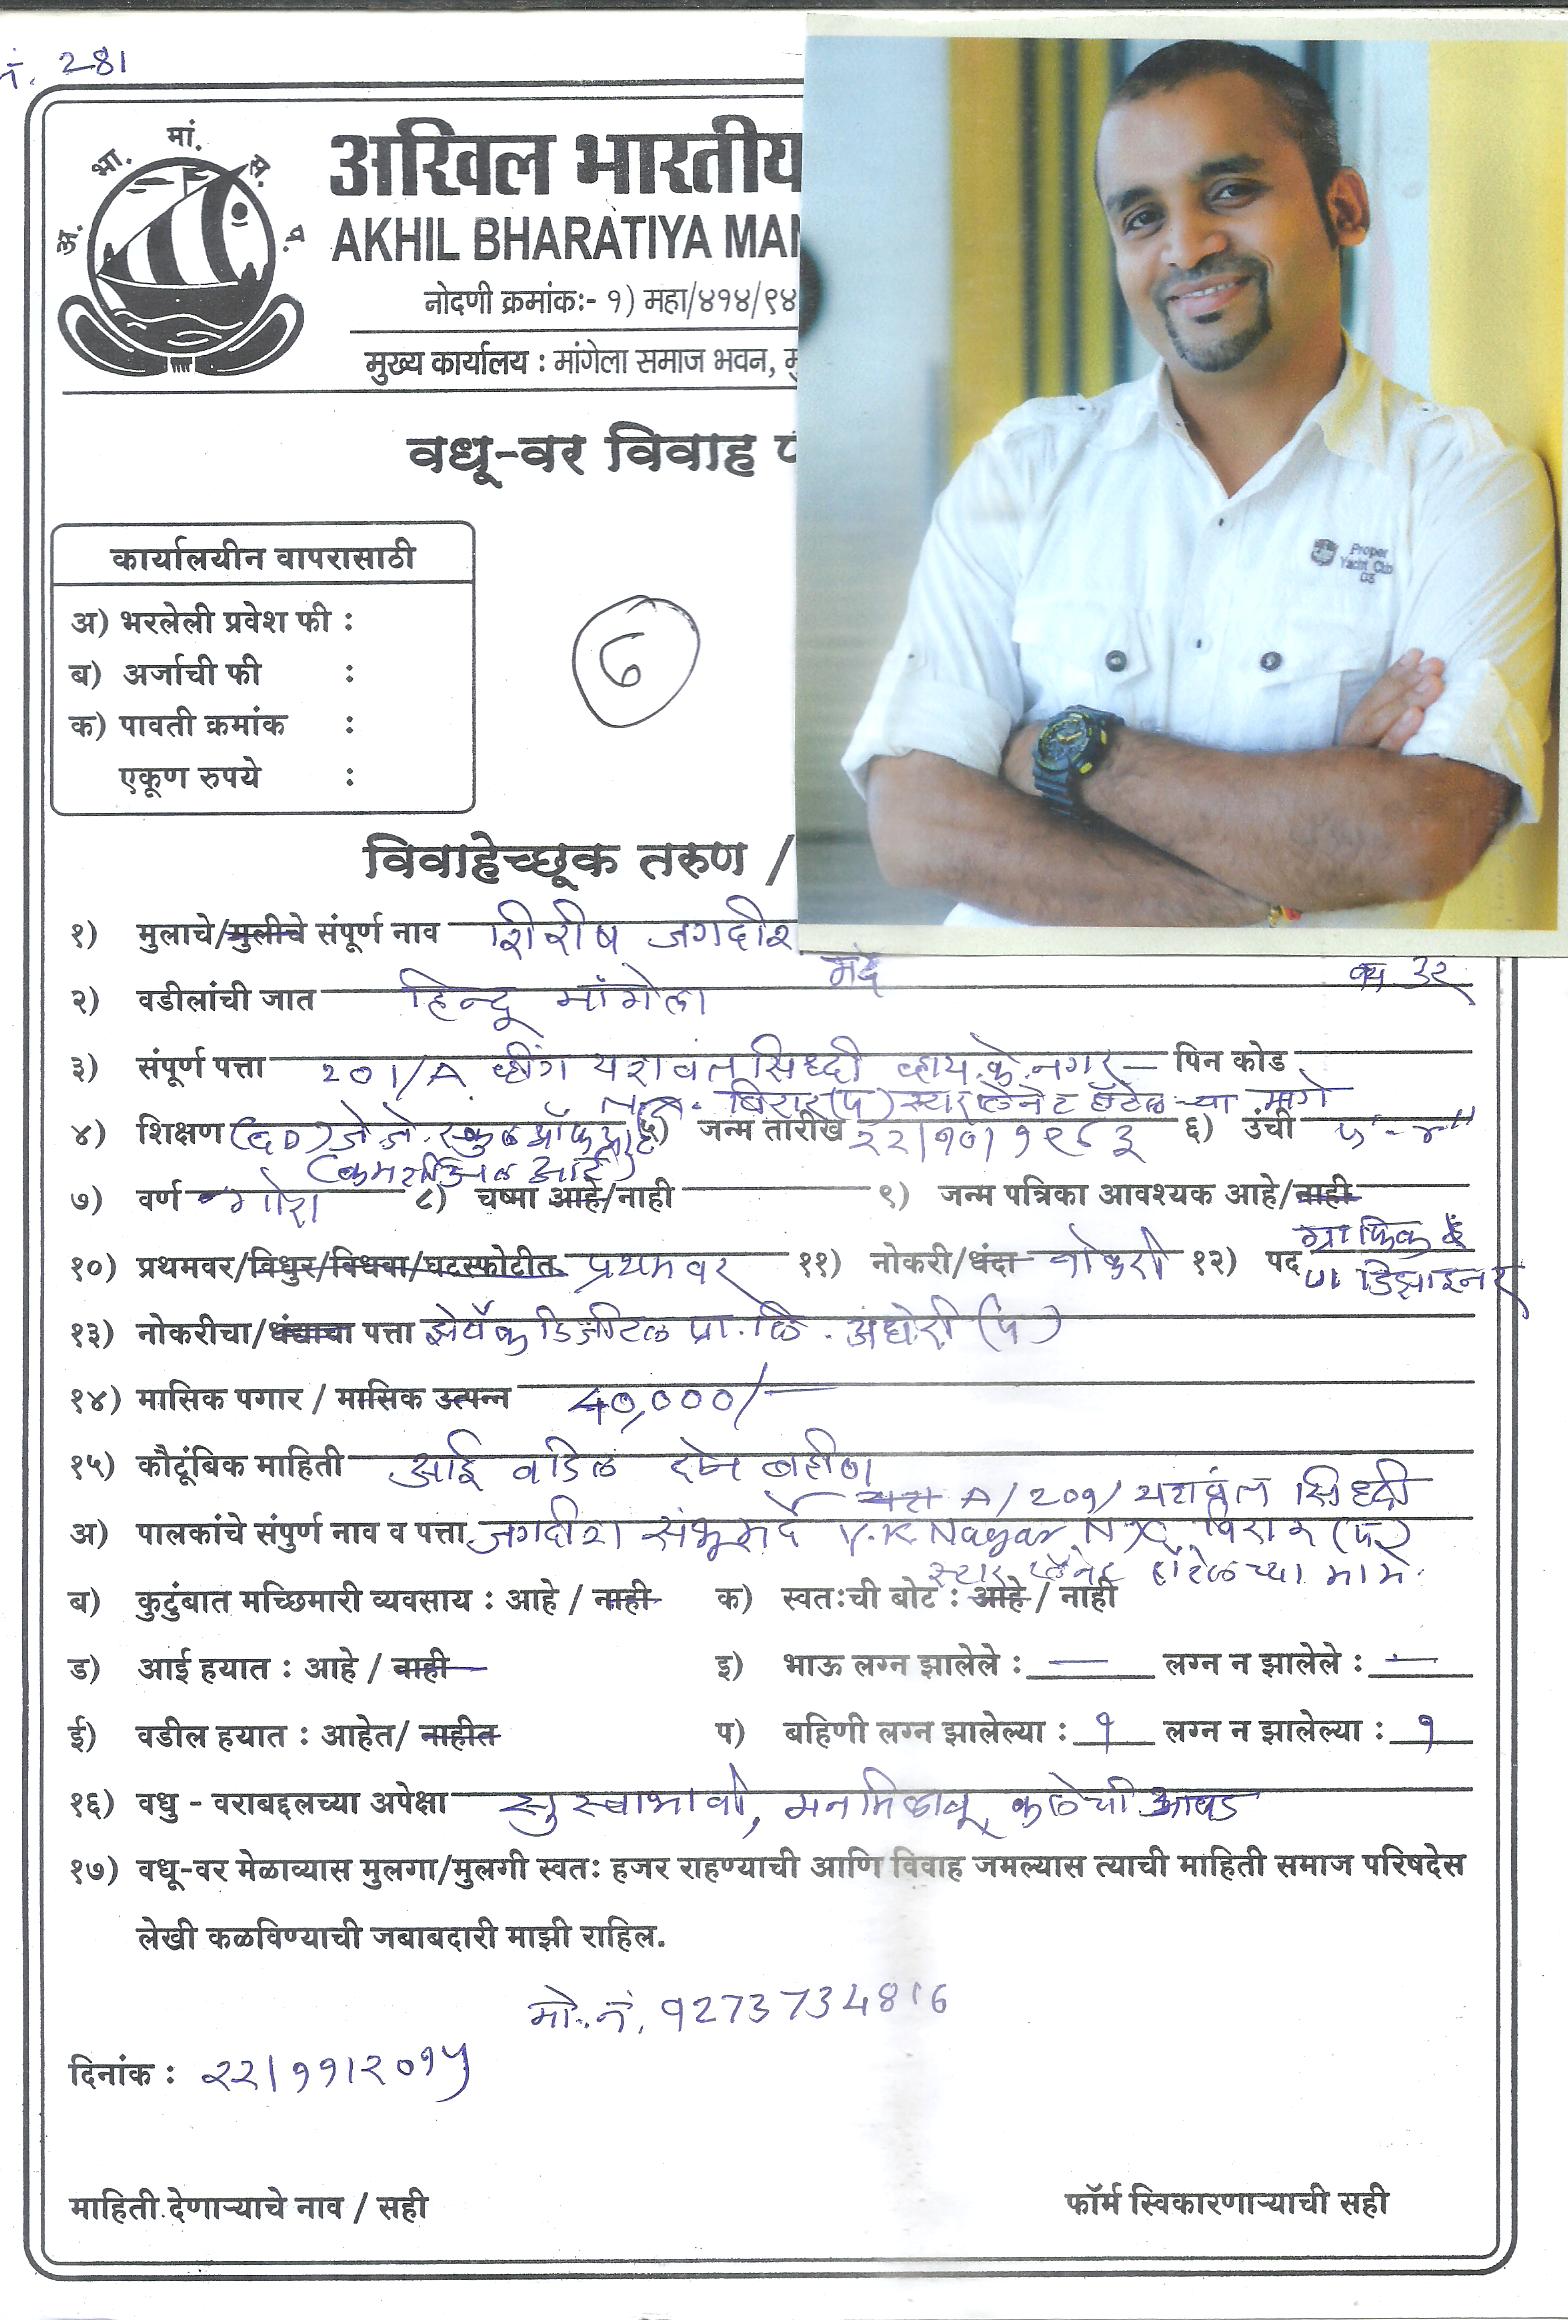 नं. 281
अ. भा. मां. स. प.
अखिल भारतीय
AKHIL BHARATIYA MAN
नोदणी क्रमांकः- १) महा/४१४/९४
मुख्य कार्यालय : मांगेला समाज भवन, मु
वधू-वर विवाह
Proper
Yacht Club
कार्यालयीन वापरासाठी
अ) भरलेली प्रवेश फी :
ब) अर्जाची फी :
क) पावती क्रमांक :
एकूण रुपये :
विवाहेच्छूक तरुण /
१) मुलाचे/मुलीचे संपूर्ण नाव शिरीष जगदीश
मर्दे वय 32
२) वडीलांची जात हिन्दू मांगेला
३) संपूर्ण पत्ता २०1/A व्हींग यशवंत सिध्दी व्हाय.के.नगर पिन कोड
विरार (प) स्टार प्लॅनेट हॉटेल च्या मागे
४) शिक्षण जे.जे. स्कुल ऑफ आर्ट ५) जन्म तारीख २२/१०/१९८३ ६) उंची ५'-४"
(कमर्शीअल आर्ट)
७) वर्ण गोरा ८) चष्मा आहे/नाही ९) जन्म पत्रिका आवश्यक आहे/नाही
१०) प्रथमवर/विधुर/विधवा/घटस्फोटीत प्रथमवर ११) नोकरी/धंदा नोकरी १२) पद ग्राफिक
डिझाइनर
१३) नोकरीचा/धंद्याचा पत्ता डिजीटल प्रा. लि. अंधेरी (प)
१४) मासिक पगार / मासिक उत्पन्न 40,000/-
१५) कौटूंबिक माहिती आई वडिल दोन बहीण
A/२०१/ यशवंत सिध्दी
अ) पालकांचे संपुर्ण नाव व पत्ता जगदीश शंभू मर्दे Y.K Nagar NX विरार (प)
स्टार प्लॅनेट हॉटेलच्या मागे.
ब) कुटुंबात मच्छिमारी व्यवसाय : आहे / नाही क) स्वतःची बोट : आहे / नाही
ड) आई हयात : आहे / नाही इ) भाऊ लग्न झालेले : — लग्न न झालेले : —
ई) वडील हयात : आहेत/ नाहीत प) बहिणी लग्न झालेल्या : १ लग्न न झालेल्या : १
१६) वधु - वराबद्दलच्या अपेक्षा सुस्वाभावी, मनमिळावू, कलेची आवड
१७) वधू-वर मेळाव्यास मुलगा/मुलगी स्वतः हजर राहण्याची आणि विवाह जमल्यास त्याची माहिती समाज परिषदेस
लेखी कळविण्याची जबाबदारी माझी राहिल.
मो. नं. 9273734816
दिनांक : २२/११/२०१५
माहिती देणाऱ्याचे नाव / सही फॉर्म स्विकारणाऱ्याची सही